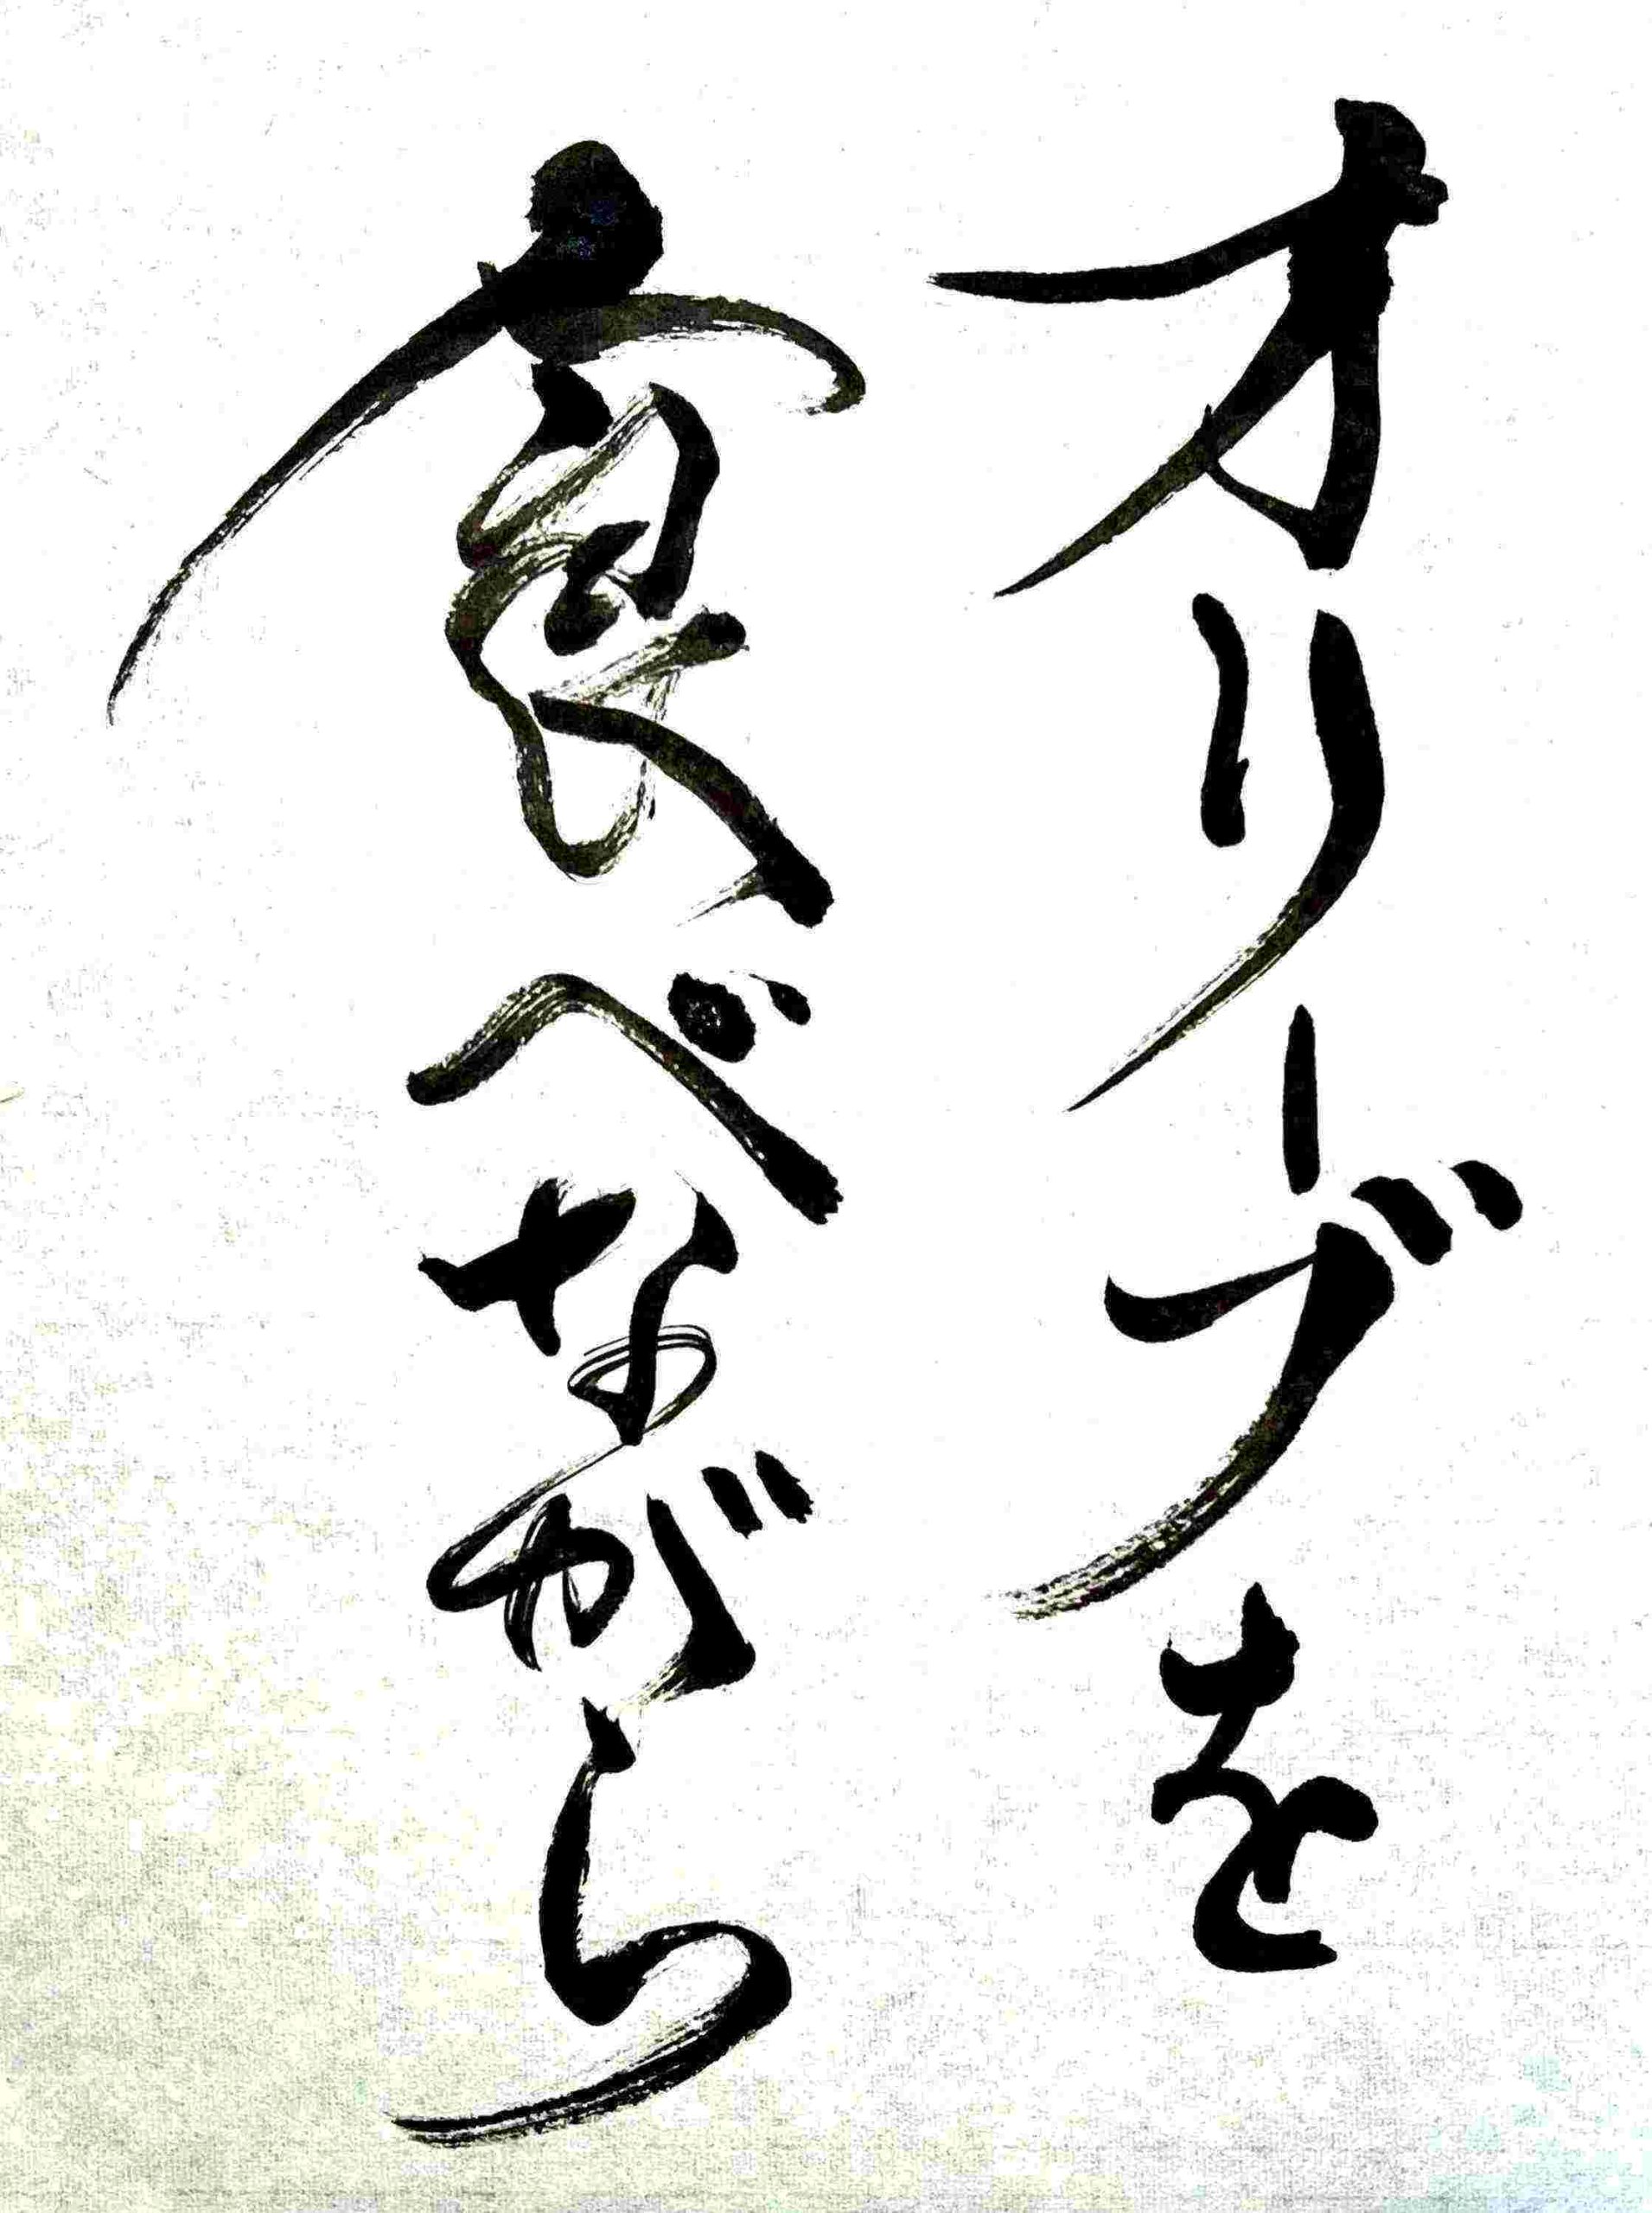 オリーブを
食べながら